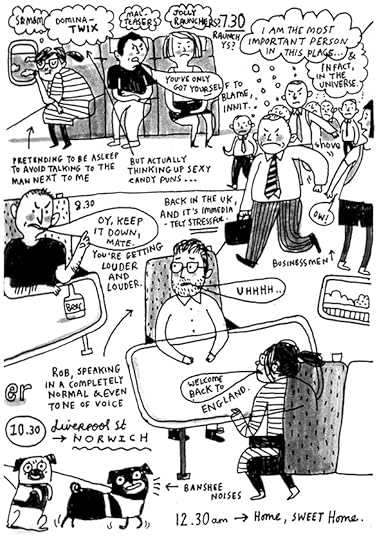 S&M&M
DOMINA-
TWIX
MAL-
TEASERS
JOLLY
RAUNCHERS?
7.30
RAUNCH
YS?
YOU'VE ONLY
GOT YOURSELF TO
BLAME,
INNIT.
I AM THE MOST
IMPORTANT PERSON
IN THIS PLACE... &
IN FACT,
IN THE
UNIVERSE.
SHOVE
OW!
PRETENDING TO BE ASLEEP
TO AVOID TALKING TO THE
MAN NEXT TO ME
BUT ACTUALLY
THINKING UP SEXY
CANDY PUNS...
BACK IN THE UK,
AND IT'S IMMEDIA-
TELY STRESSFUL.
BUSINESSMEN
8.30
OY, KEEP
IT DOWN,
MATE.
YOU'RE GETTING
LOUDER
AND
LOUDER.
Beer
UHHHH..
ROB, SPEAKING
IN A COMPLETELY
NORMAL & EVEN
TONE OF VOICE
WELCOME
BACK TO
ENGLAND.
er
10.30
Liverpool St
→ NORWICH
← BANSHEE
NOISES
12.30 am → Home, SWEET Home.